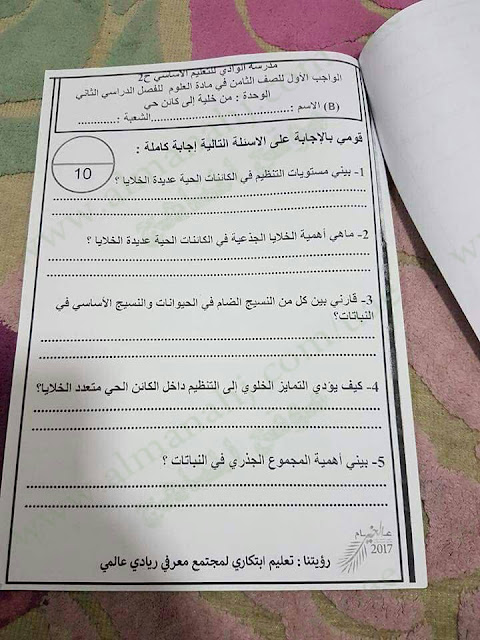 مدرسة الوادي للتعليم الأساسي ح2
الواجب الأول للصف الثامن في مادة العلوم للفصل الدراسي الثاني
الوحدة : من خلية إلى كائن حي
(B) الاسم :.......................................الشعبة :............
قومي بالإجابة على الاسئلة التالية إجابة كاملة :
10
1- بيني مستويات التنظيم في الكائنات الحية عديدة الخلايا ؟
2- ماهي أهمية الخلايا الجذعية في الكائنات الحية عديدة الخلايا ؟
3- قارني بين كل من النسيج الضام في الحيوانات والنسيج الأساسي في
النباتات؟
4- كيف يؤدي التمايز الخلوي الى التنظيم داخل الكائن الحي متعدد الخلايا؟
5- بيني أهمية المجموع الجذري في النباتات ؟
2017
رؤيتنا : تعليم ابتكاري لمجتمع معرفي ريادي عالمي